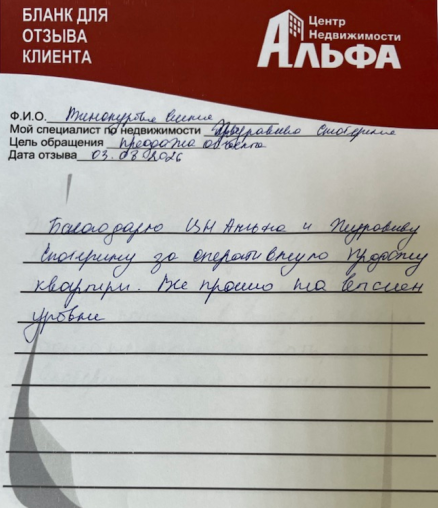 БЛАНК ДЛЯ
ОТЗЫВА
КЛИЕНТА
Центр
Недвижимости
АЛЬФА
Ф.И.О.
Мой специалист по недвижимости
Цель обращения продажа объекта
Дата отзыва 03.08.2026
Благодарю ЦН Альфа и Журавлеву
Екатерину за оперативную продажу
квартиры. Все прошло на высшем
уровне